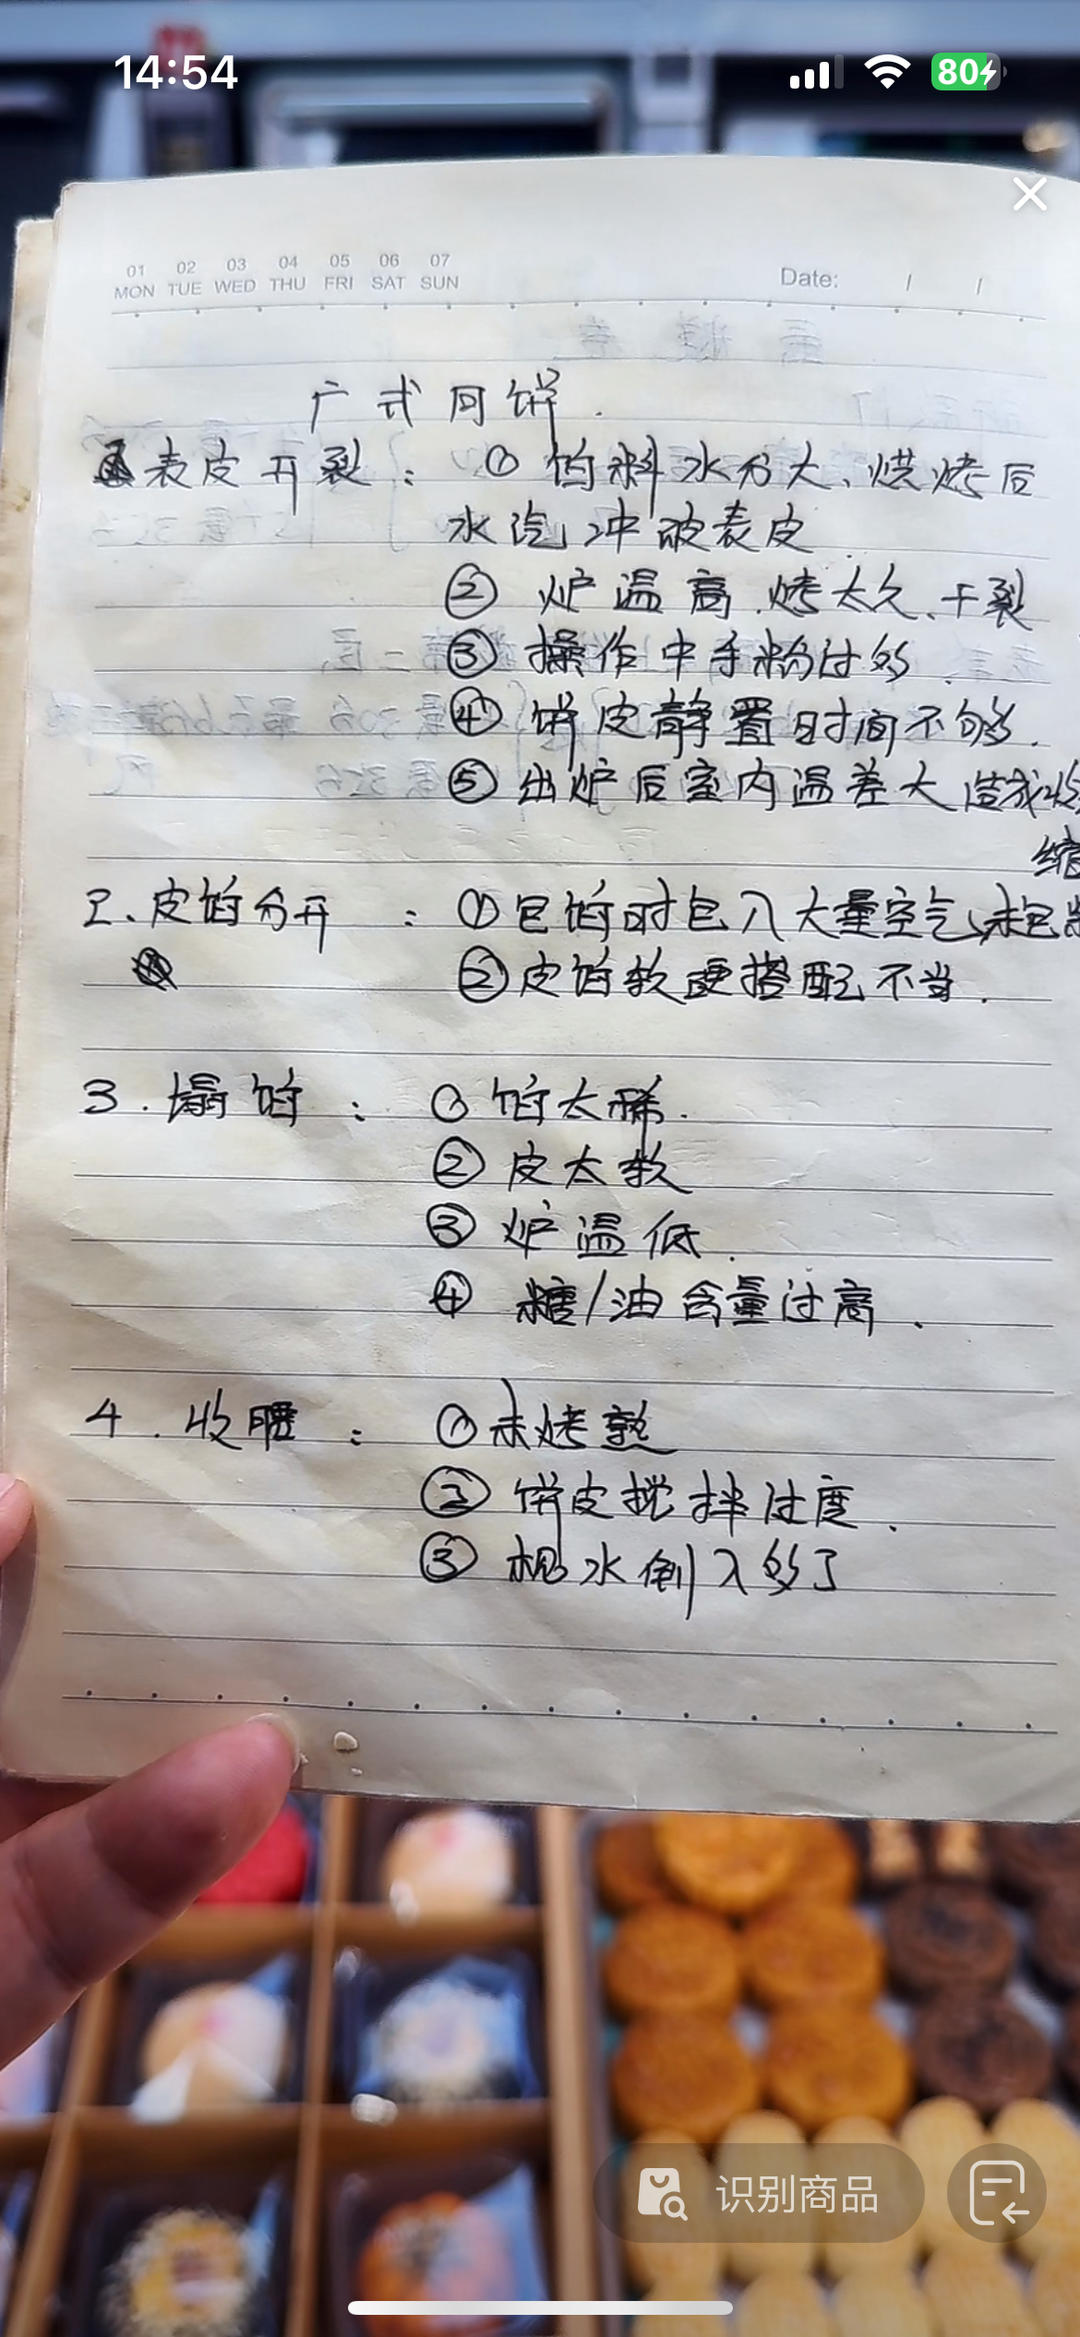 14:54
80
01 02 03 04 05 06 07
MON TUE WED THU FRI SAT SUN
Date: / /
广式月饼.
表皮开裂: ① 馅料水分大、烘烤后
水汽冲破表皮
② 炉温高.烤太久、干裂
③ 操作中手粉过多.
④ 饼皮静置时间不够.
⑤ 出炉后室内温差大造成收
缩
2、皮馅分开: ①包馅时包入大量空气,未包紧
②皮馅软硬搭配不当.
3.塌馅: ① 馅太稀.
② 皮太软
③ 炉温低.
④ 糖/油含量过高.
4.收腰: ①未烤熟
② 饼皮搅拌过度.
③ 枧水倒入多了
识别商品